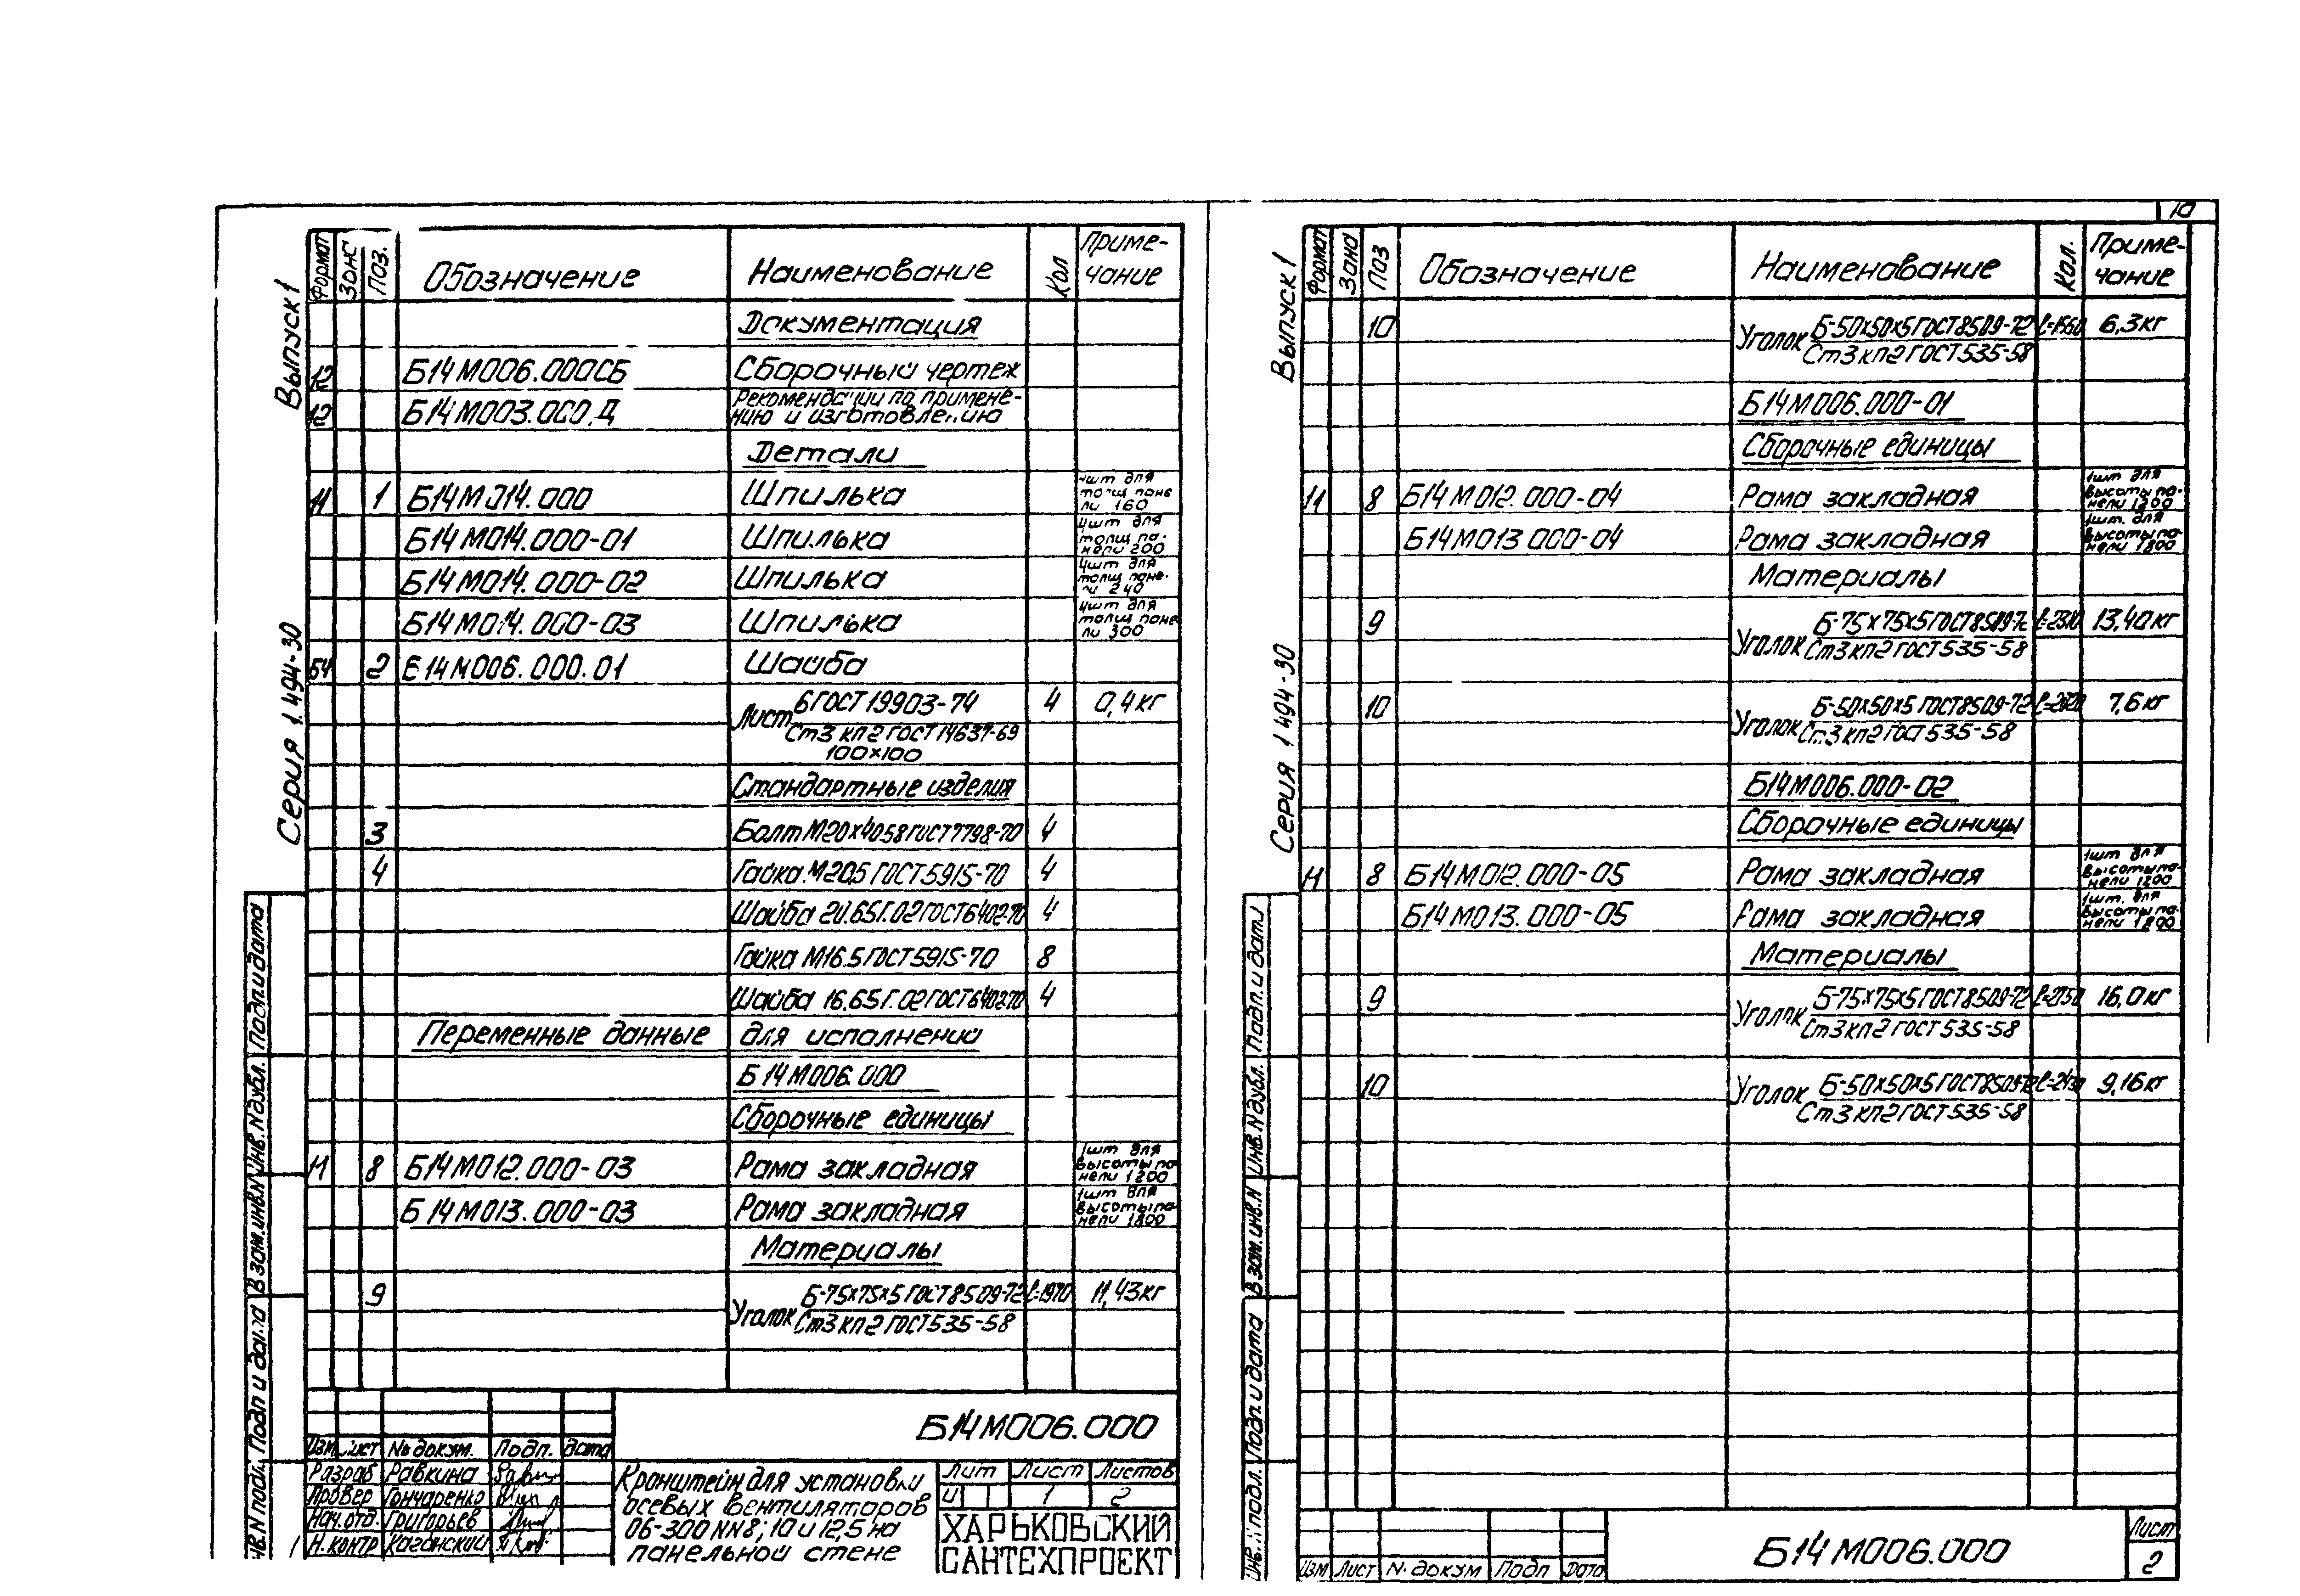 10
Выпуск 1
Серия 1.494-30
Формат Зона Поз. Обозначение Наименование Кол Приме-
чание
Документация
12 Б14М006.000СБ Сборочный чертеж
12 Б14М003.000.Д Рекомендации по примене-
нию и изготовлению
Детали
11 1 Б14М014.000 Шпилька 4шт для
толщ пане
ли 160
Б14М014.000-01 Шпилька 4шт для
толщ па-
нели 200
Б14М014.000-02 Шпилька 4шт для
толщ пане-
ли 240
Б14М014.000-03 Шпилька 4шт для
толщ пане
ли 300
БЧ 2 Б14М006.000.01 Шайба
Лист 6 ГОСТ 19903-74 4 0,4кг
Ст3 кп2 ГОСТ 14637-69
100×100
Стандартные изделия
3 Болт М20×40.58 ГОСТ 7798-70 4
4 Гайка М20.5 ГОСТ 5915-70 4
Шайба 20.65Г.02 ГОСТ 6402-70 4
Гайка М16.5 ГОСТ 5915-70 8
Шайба 16.65Г.02 ГОСТ 6402-70 4
Переменные данные для исполнений
Б14М006.000
Сборочные единицы
11 8 Б14М012.000-03 Рама закладная 1шт для
высоты па-
нели 1200
Б14М013.000-03 Рама закладная 1шт для
высоты па-
нели 1800
Материалы
9 Уголок Б-75×75×5 ГОСТ 8509-72 ℓ=1970 11,43кг
Ст3 кп2 ГОСТ 535-58
Б14М006.000
Изм Лист № докум. Подп. Дата
Разраб Равкина
Провер Гончаренко
Нач.отд. Григорьев
Н.контр Каганский
Кронштейн для установки
осевых вентиляторов
06-300 NN8; 10 и 12,5 на
панельной стене
Лит Лист Листов
И 1 2
ХАРЬКОВСКИЙ
САНТЕХПРОЕКТ
Подп. и дата
Инв. N дубл.
Взам. инв. N
Подп и дата
Инв. N подл.
Выпуск 1
Серия 1.494-30
Формат Зона Поз Обозначение Наименование Кол. Приме-
чание
10 Уголок Б-50×50×5 ГОСТ 8509-72 ℓ=1560 6,3кг
Ст3 кп2 ГОСТ 535-58
Б14М006.000-01
Сборочные единицы
11 8 Б14М012.000-04 Рама закладная 1шт для
высоты па-
нели 1200
Б14М013.000-04 Рама закладная 1шт. для
высоты па-
нели 1800
Материалы
9 Уголок Б-75×75×5 ГОСТ 8509-72 ℓ=2310 13,40кг
Ст3 кп2 ГОСТ 535-58
10 Уголок Б-50×50×5 ГОСТ 8509-72 7,6кг
Ст3 кп2 ГОСТ 535-58
Б14М006.000-02
Сборочные единицы
11 8 Б14М012.000-05 Рама закладная 1шт для
высоты па-
нели 1200
Б14М013.000-05 Рама закладная 1шт. для
высоты па-
нели 1800
Материалы
9 Уголок Б-75×75×5 ГОСТ 8509-72 ℓ=2750 16,0кг
Ст3 кп2 ГОСТ 535-58
10 Уголок Б-50×50×5 ГОСТ 8509-72 9,16кг
Ст3 кп2 ГОСТ 535-58
Изм Лист N. докум Подп Дата
Б14М006.000
Лист
2
Подп. и дата
Инв. N дубл.
Взам. инв. N
Подп. и дата
Инв. N подл.